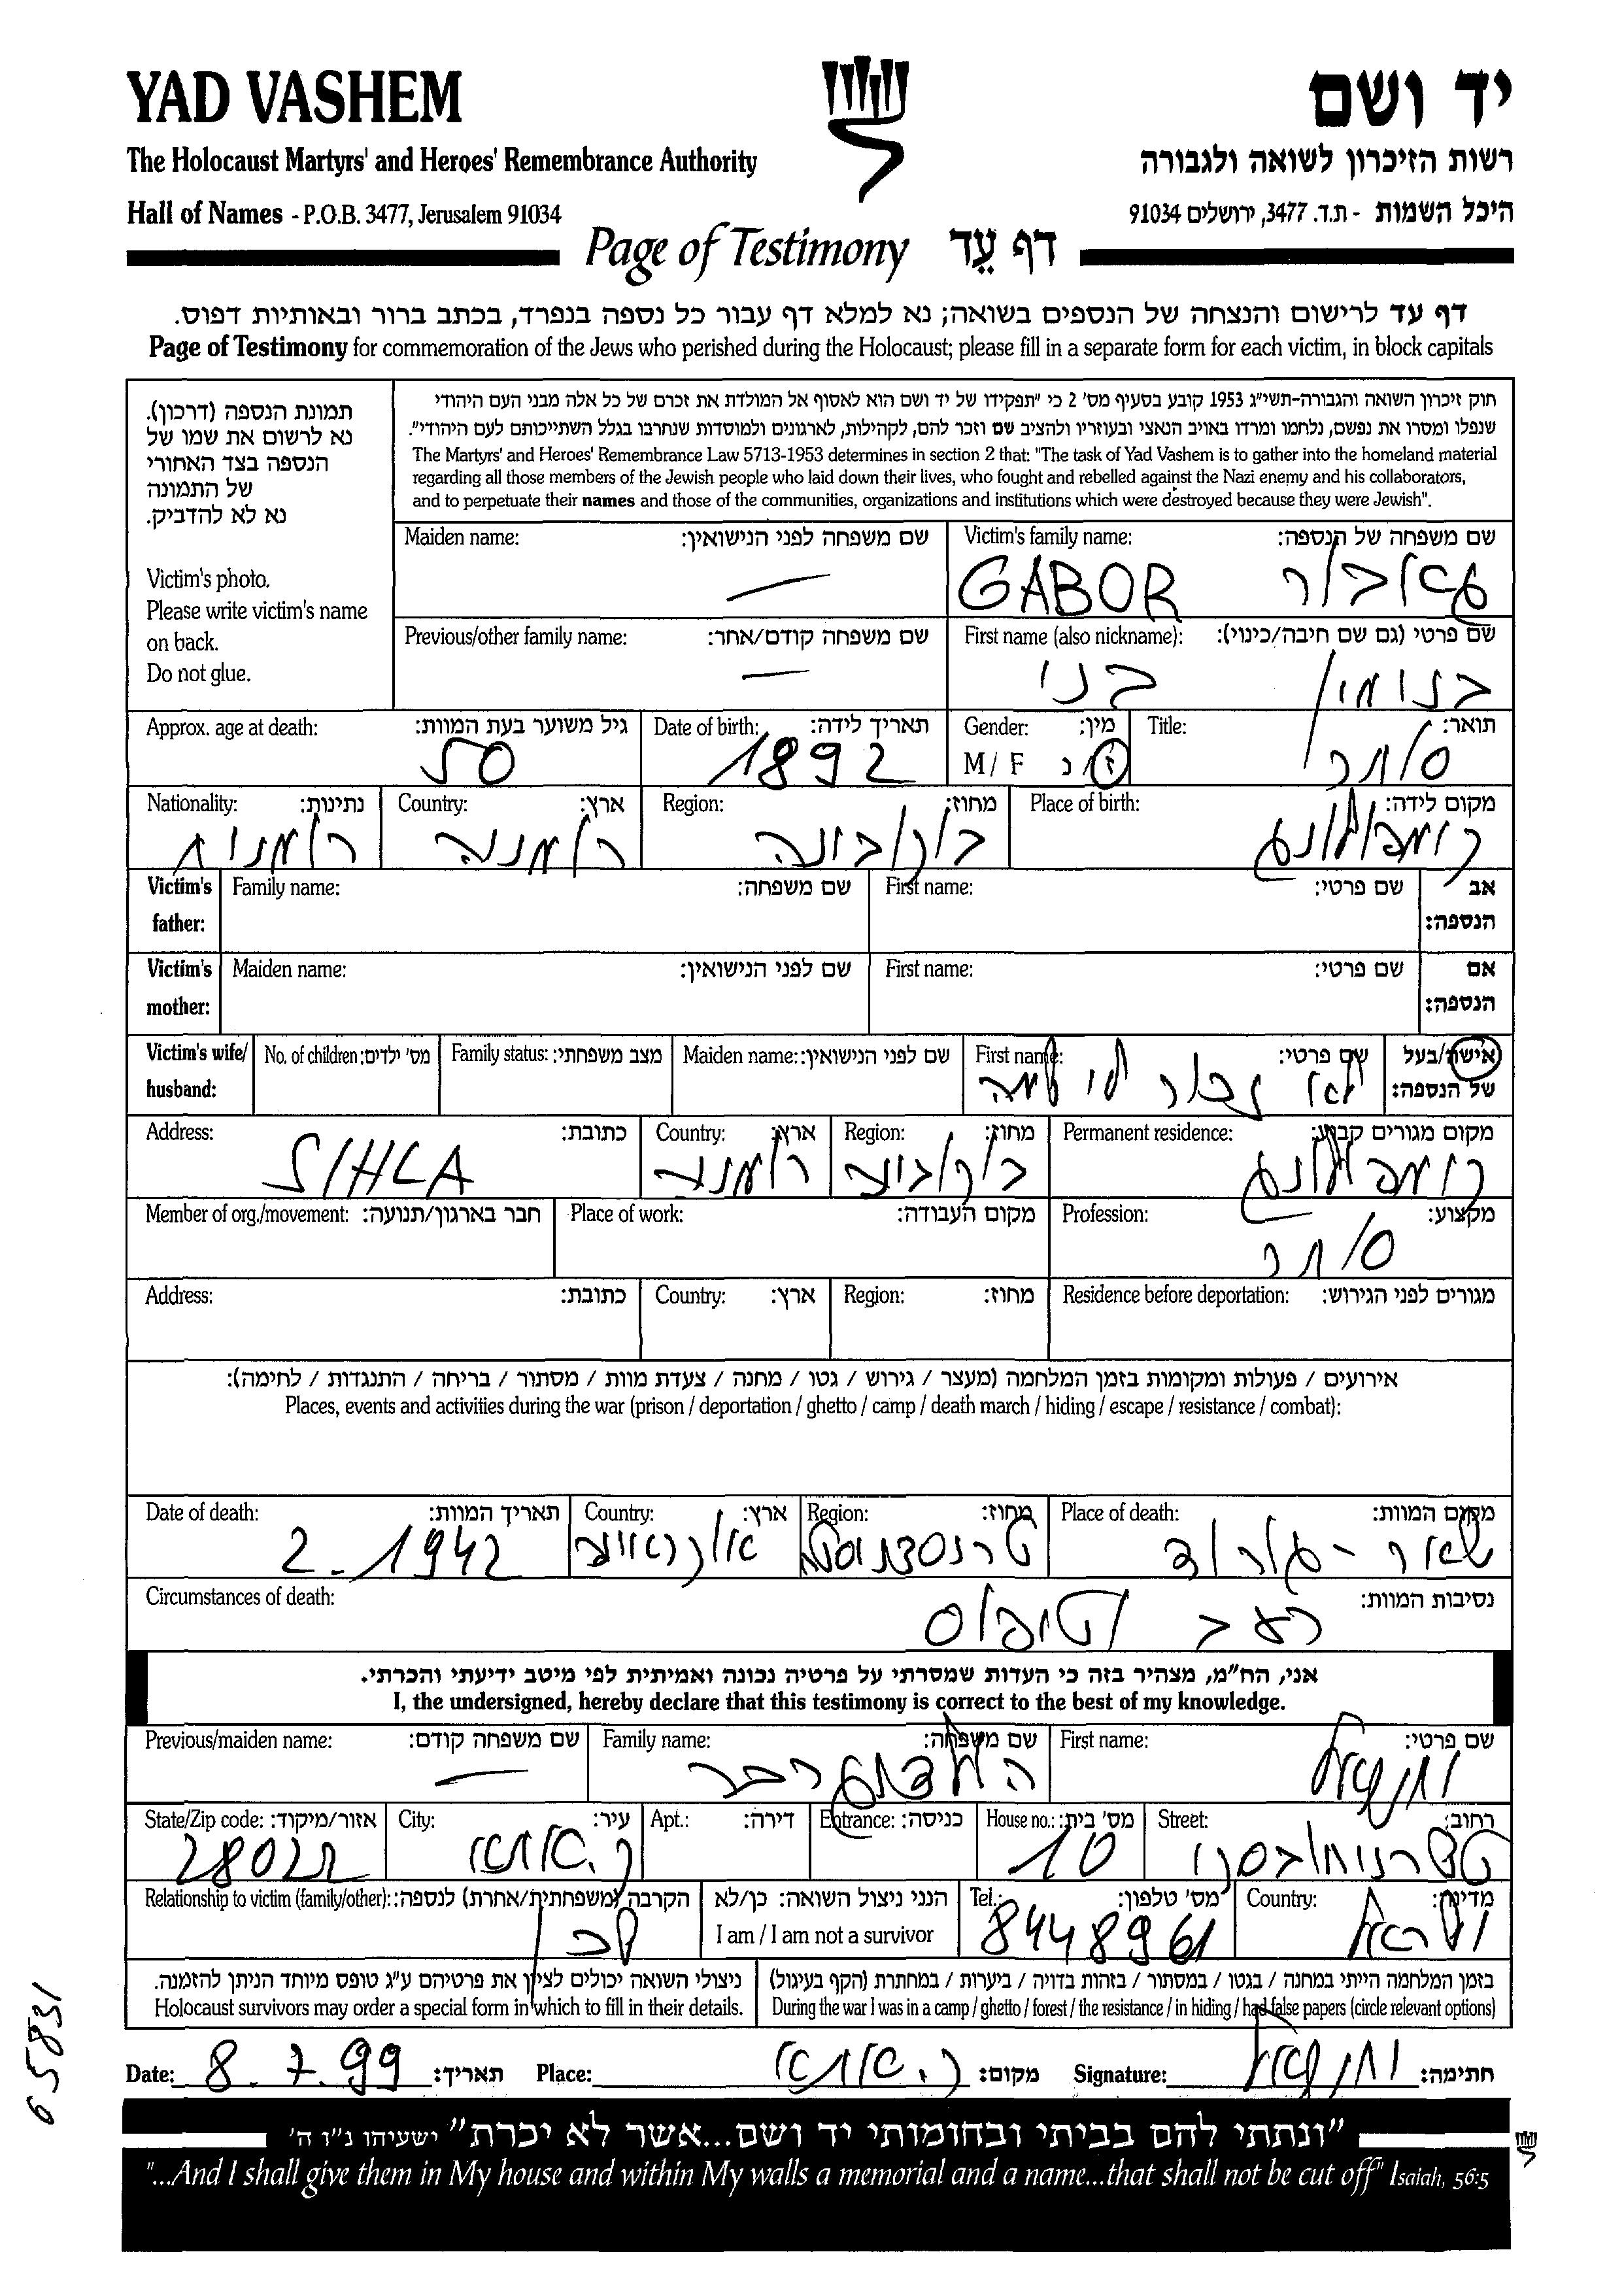 YAD VASHEM
יד ושם
The Holocaust Martyrs' and Heroes' Remembrance Authority
רשות הזיכרון לשואה ולגבורה
Hall of Names - P.O.B. 3477, Jerusalem 91034
היכל השמות - ת.ד. 3477, ירושלים 91034
Page of Testimony דף עֵד
דף עד לרישום והנצחה של הנספים בשואה; נא למלא דף עבור כל נספה בנפרד, בכתב ברור ובאותיות דפוס.
Page of Testimony for commemoration of the Jews who perished during the Holocaust; please fill in a separate form for each victim, in block capitals
תמונת הנספה (דרכון).
נא לרשום את שמו של
הנספה בצד האחורי
של התמונה
נא לא להדביק.
Victim's photo.
Please write victim's name
on back.
Do not glue.
חוק זיכרון השואה והגבורה-תשי"ג 1953 קובע בסעיף מס' 2 כי "תפקידו של יד ושם הוא לאסוף אל המולדת את זכרם של כל אלה מבני העם היהודי
שנפלו ומסרו את נפשם, נלחמו ומרדו באויב הנאצי ובעוזריו ולהציב שם וזכר להם, לקהילות, לארגונים ולמוסדות שנחרבו בגלל השתייכותם לעם היהודי".
The Martyrs' and Heroes' Remembrance Law 5713-1953 determines in section 2 that: "The task of Yad Vashem is to gather into the homeland material
regarding all those members of the Jewish people who laid down their lives, who fought and rebelled against the Nazi enemy and his collaborators,
and to perpetuate their names and those of the communities, organizations and institutions which were destroyed because they were Jewish".
Maiden name: שם משפחה לפני הנישואין: Victim's family name: שם משפחה של הנספה:
— GABOR גאבור
Previous/other family name: שם משפחה קודם/אחר: First name (also nickname): שם פרטי (גם שם חיבה/כינוי):
— בני בנימין
Approx. age at death: גיל משוער בעת המוות: Date of birth: תאריך לידה: Gender: מין: Title: תואר:
50 1892 M / F ז / נ סוחר
Nationality: נתינות: Country: ארץ: Region: מחוז: Place of birth: מקום לידה:
רומנית רומניה בוקובינה קימפולונג
Victim's father: Family name: שם משפחה: First name: שם פרטי: אב הנספה:
Victim's mother: Maiden name: שם לפני הנישואין: First name: שם פרטי: אם הנספה:
Victim's wife/ husband: No. of children: מס' ילדים: Family status: מצב משפחתי: Maiden name: שם לפני הנישואין: First name: שם פרטי: אישה/בעל של הנספה:
Address: כתובת: Country: ארץ: Region: מחוז: Permanent residence: מקום מגורים קבוע:
SIHLA רומניה בוקובינה קימפולונג
Member of org./movement: חבר בארגון/תנועה: Place of work: מקום העבודה: Profession: מקצוע:
סוחר
Address: כתובת: Country: ארץ: Region: מחוז: Residence before deportation: מגורים לפני הגירוש:
אירועים / פעולות ומקומות בזמן המלחמה (מעצר / גירוש / גטו / מחנה / צעדת מוות / מסתור / בריחה / התנגדות / לחימה):
Places, events and activities during the war (prison / deportation / ghetto / camp / death march / hiding / escape / resistance / combat):
Date of death: תאריך המוות: Country: ארץ: Region: מחוז: Place of death: מקום המוות:
2. 1942 אוקראינה טרנסדנוסטריה שאר-גורוד
Circumstances of death: נסיבות המוות:
רעב וטיפוס
אני, הח"מ, מצהיר בזה כי העדות שמסרתי על פרטיה נכונה ואמיתית לפי מיטב ידיעתי והכרתי.
I, the undersigned, hereby declare that this testimony is correct to the best of my knowledge.
Previous/maiden name: שם משפחה קודם: Family name: שם משפחה: First name: שם פרטי:
— יחזקאל
State/Zip code: אזור/מיקוד: City: עיר: Apt.: דירה: Entrance: כניסה: House no.: מס' בית: Street: רחוב:
ק. אתא 10 טשרניחובסקי
Relationship to victim (family/other): הקרבה (משפחתית/אחרת) לנספה: הנני ניצול השואה: כן/לא Tel.: מס' טלפון: Country: מדינה:
I am / I am not a survivor
8448961 ישראל
ניצולי השואה יכולים לציין את פרטיהם ע"ג טופס מיוחד הניתן להזמנה.
Holocaust survivors may order a special form in which to fill in their details.
בזמן המלחמה הייתי במחנה / בגטו / במסתור / בזהות בדויה / ביערות / במחתרת (הקף בעיגול)
During the war I was in a camp / ghetto / forest / the resistance / in hiding / had false papers (circle relevant options)
Date: 8. 7. 99 תאריך: Place: ק. אתא מקום: Signature: יחזקאל חתימה:
"ונתתי להם בביתי ובחומותי יד ושם...אשר לא יכרת" ישעיהו נ"ו ה'
"...And I shall give them in My house and within My walls a memorial and a name...that shall not be cut off" Isaiah, 56:5
65831